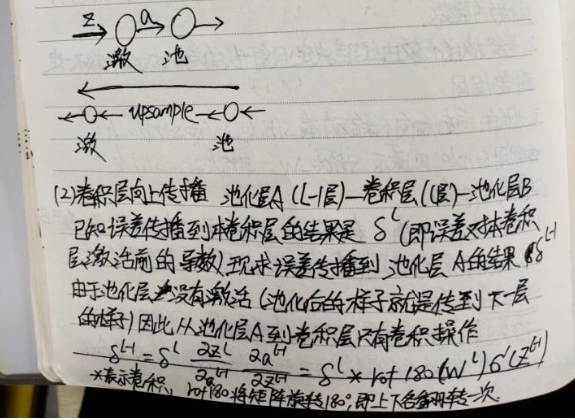 z a
激 池
upsample
激 池
(2)卷积层向上传播 池化层A(l-1层)—卷积层(l层)—池化层B
已知误差传播到本卷积层的结果是 δ^l (即误差对本卷积
层激活前的导数)现求误差传播到 池化层 A的结果 δ^{l-1}
由于池化层没有激活(池化后的样子就是传到下一层
的样子)因此从池化层A到卷积层只有卷积操作
δ^{l-1} = δ^l ∂z^l/∂a^{l-1} ∂a^{l-1}/∂z^{l-1} = δ^l * rot180(W^l) σ'(z^{l-1})
*表示卷积, rot180将矩阵旋转180°,即上下各翻转一次